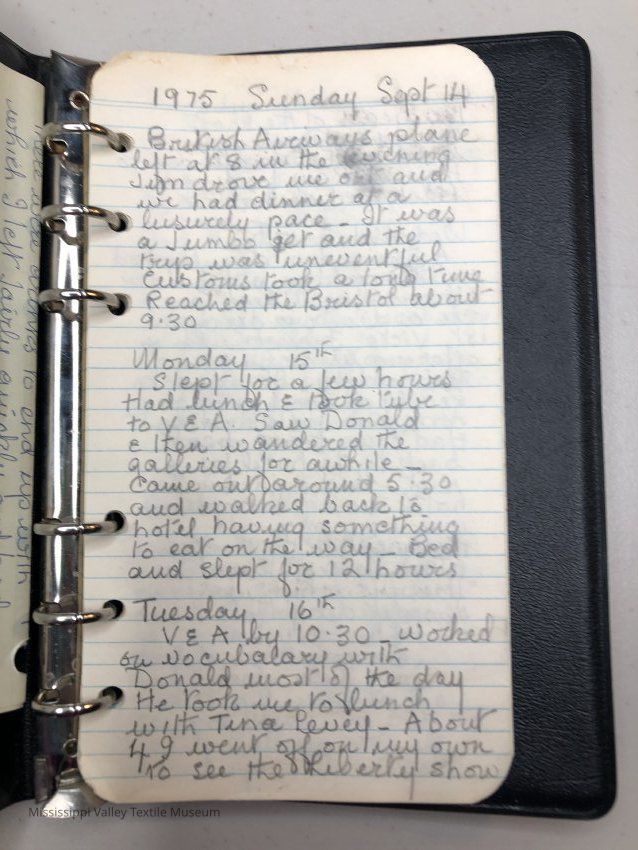 1975 Sunday Sept 14
British Airways plane
left at 8 in the evening
Jim drove me out and
we had dinner at a
leisurely pace - It was
a Jumbo jet and the
trip was uneventful
Customs took a long time
Reached the Bristol about
9.30
Monday 15th
Slept for a few hours
Had lunch & took tube
to V & A. Saw Donald
& then wandered the
galleries for awhile -
Came out around 5.30
and walked back to
hotel having something
to eat on the way - Bed
and slept for 12 hours
Tuesday 16th
V & A by 10.30 - worked
on vocubalary with
Donald most of the day
He took me to lunch
with Tina Levey - About
4 I went off on my own
to see the Liberty show
Mississippi Valley Textile Museum
which I left fairly quickly